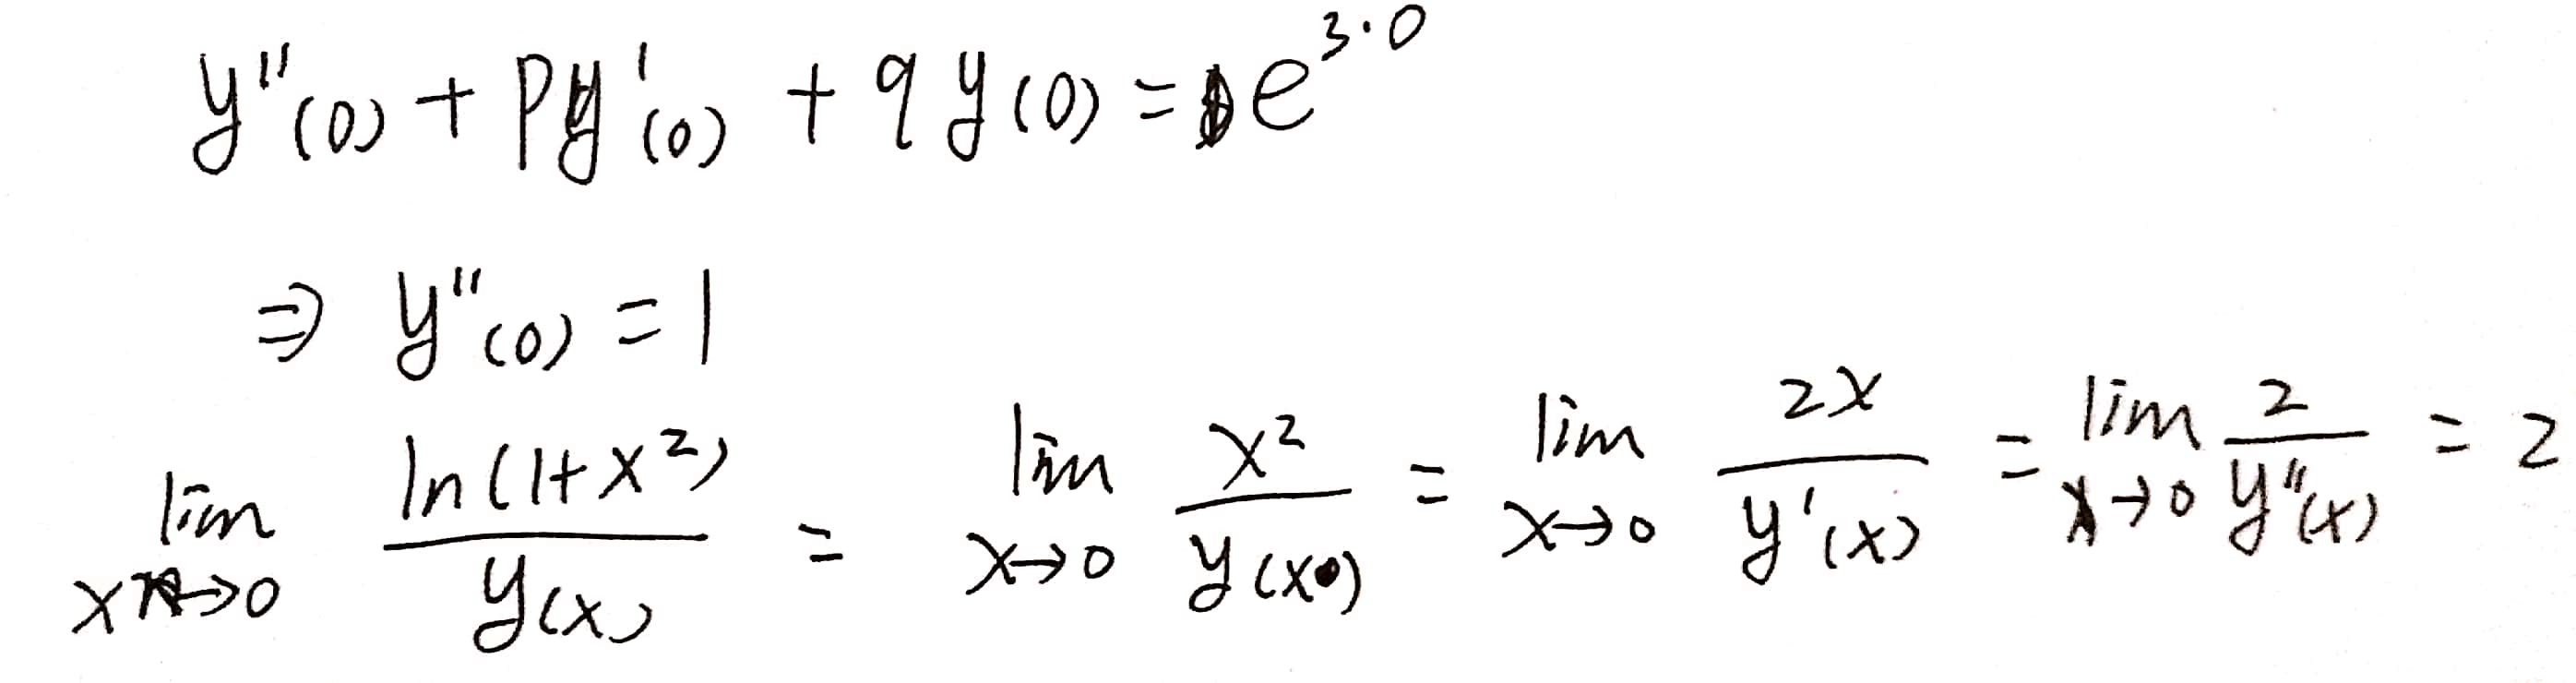 y''(0) + py'(0) + qy(0) = e^{3·0}
⇒ y''(0) = 1
lim_{x→0} \frac{ln(1+x^2)}{y(x)} = lim_{x→0} \frac{x^2}{y(x)} = lim_{x→0} \frac{2x}{y'(x)} = lim_{x→0} \frac{2}{y''(x)} = 2